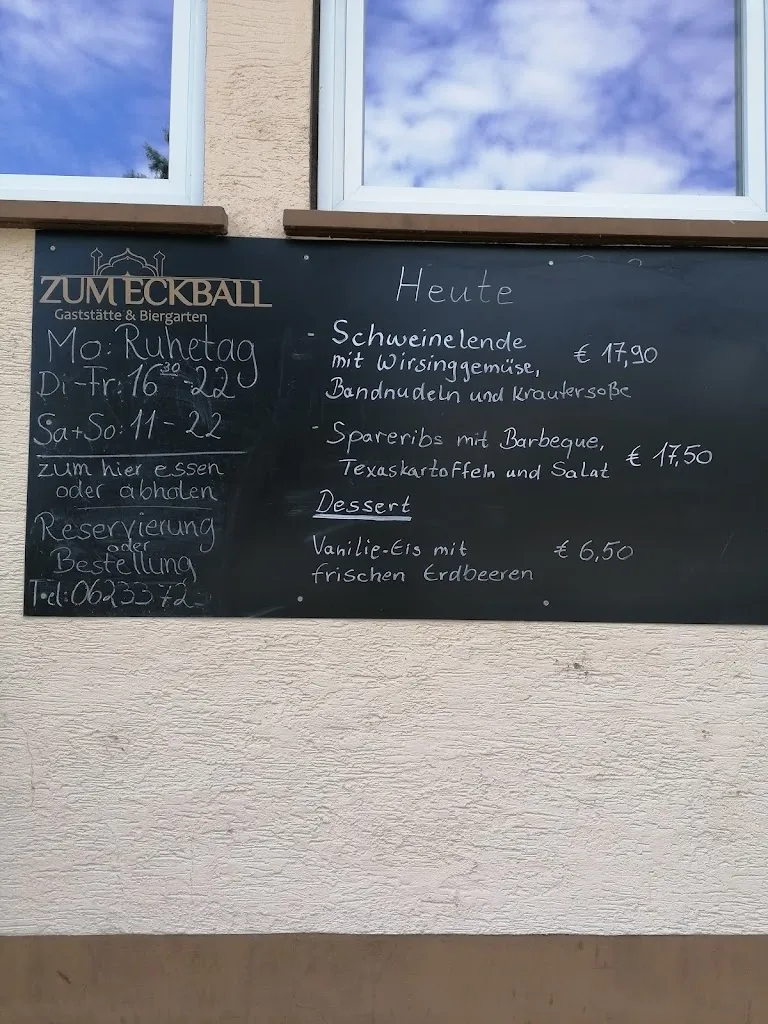 ZUM ECKBALL
Gaststätte & Biergarten
Mo: Ruhetag
Di-Fr: 16³⁰-22
Sa+So: 11-22
zum hier essen
oder abholen
Reservierung
oder
Bestellung
Tel: 0623372
Heute
- Schweinelende
mit Wirsinggemüse, € 17,90
Bandnudeln und Kräutersoße
- Spareribs mit Barbeque,
Texaskartoffeln und Salat € 17,50
Dessert
Vanilie-Eis mit € 6,50
frischen Erdbeeren